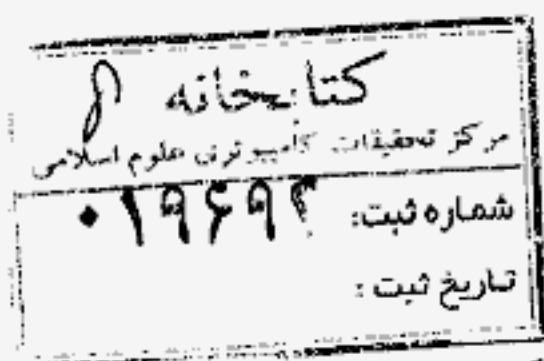 کتابخانه
مرکز تحقیقات کامپیوتری علوم اسلامی
شماره ثبت: ۰۱۹۶۹۲
تاریخ ثبت :